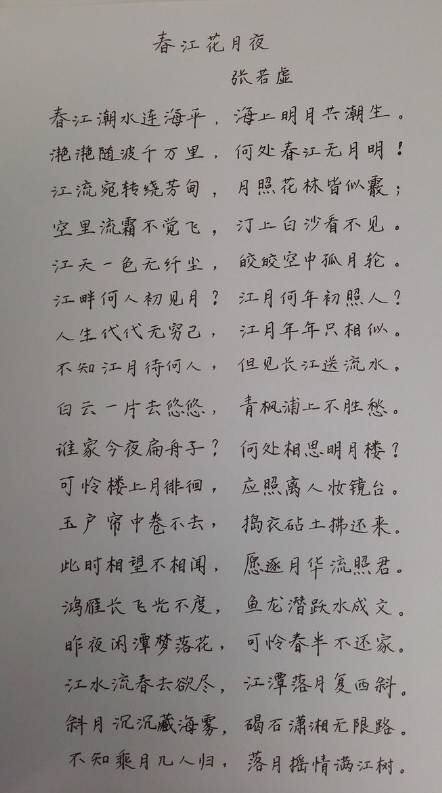 春江花月夜
张若虚
春江潮水连海平，海上明月共潮生。
滟滟随波千万里，何处春江无月明！
江流宛转绕芳甸，月照花林皆似霰；
空里流霜不觉飞，汀上白沙看不见。
江天一色无纤尘，皎皎空中孤月轮。
江畔何人初见月？江月何年初照人？
人生代代无穷已，江月年年只相似。
不知江月待何人，但见长江送流水。
白云一片去悠悠，青枫浦上不胜愁。
谁家今夜扁舟子？何处相思明月楼？
可怜楼上月徘徊，应照离人妆镜台。
玉户帘中卷不去，捣衣砧上拂还来。
此时相望不相闻，愿逐月华流照君。
鸿雁长飞光不度，鱼龙潜跃水成文。
昨夜闲潭梦落花，可怜春半不还家。
江水流春去欲尽，江潭落月复西斜。
斜月沉沉藏海雾，碣石潇湘无限路。
不知乘月几人归，落月摇情满江树。